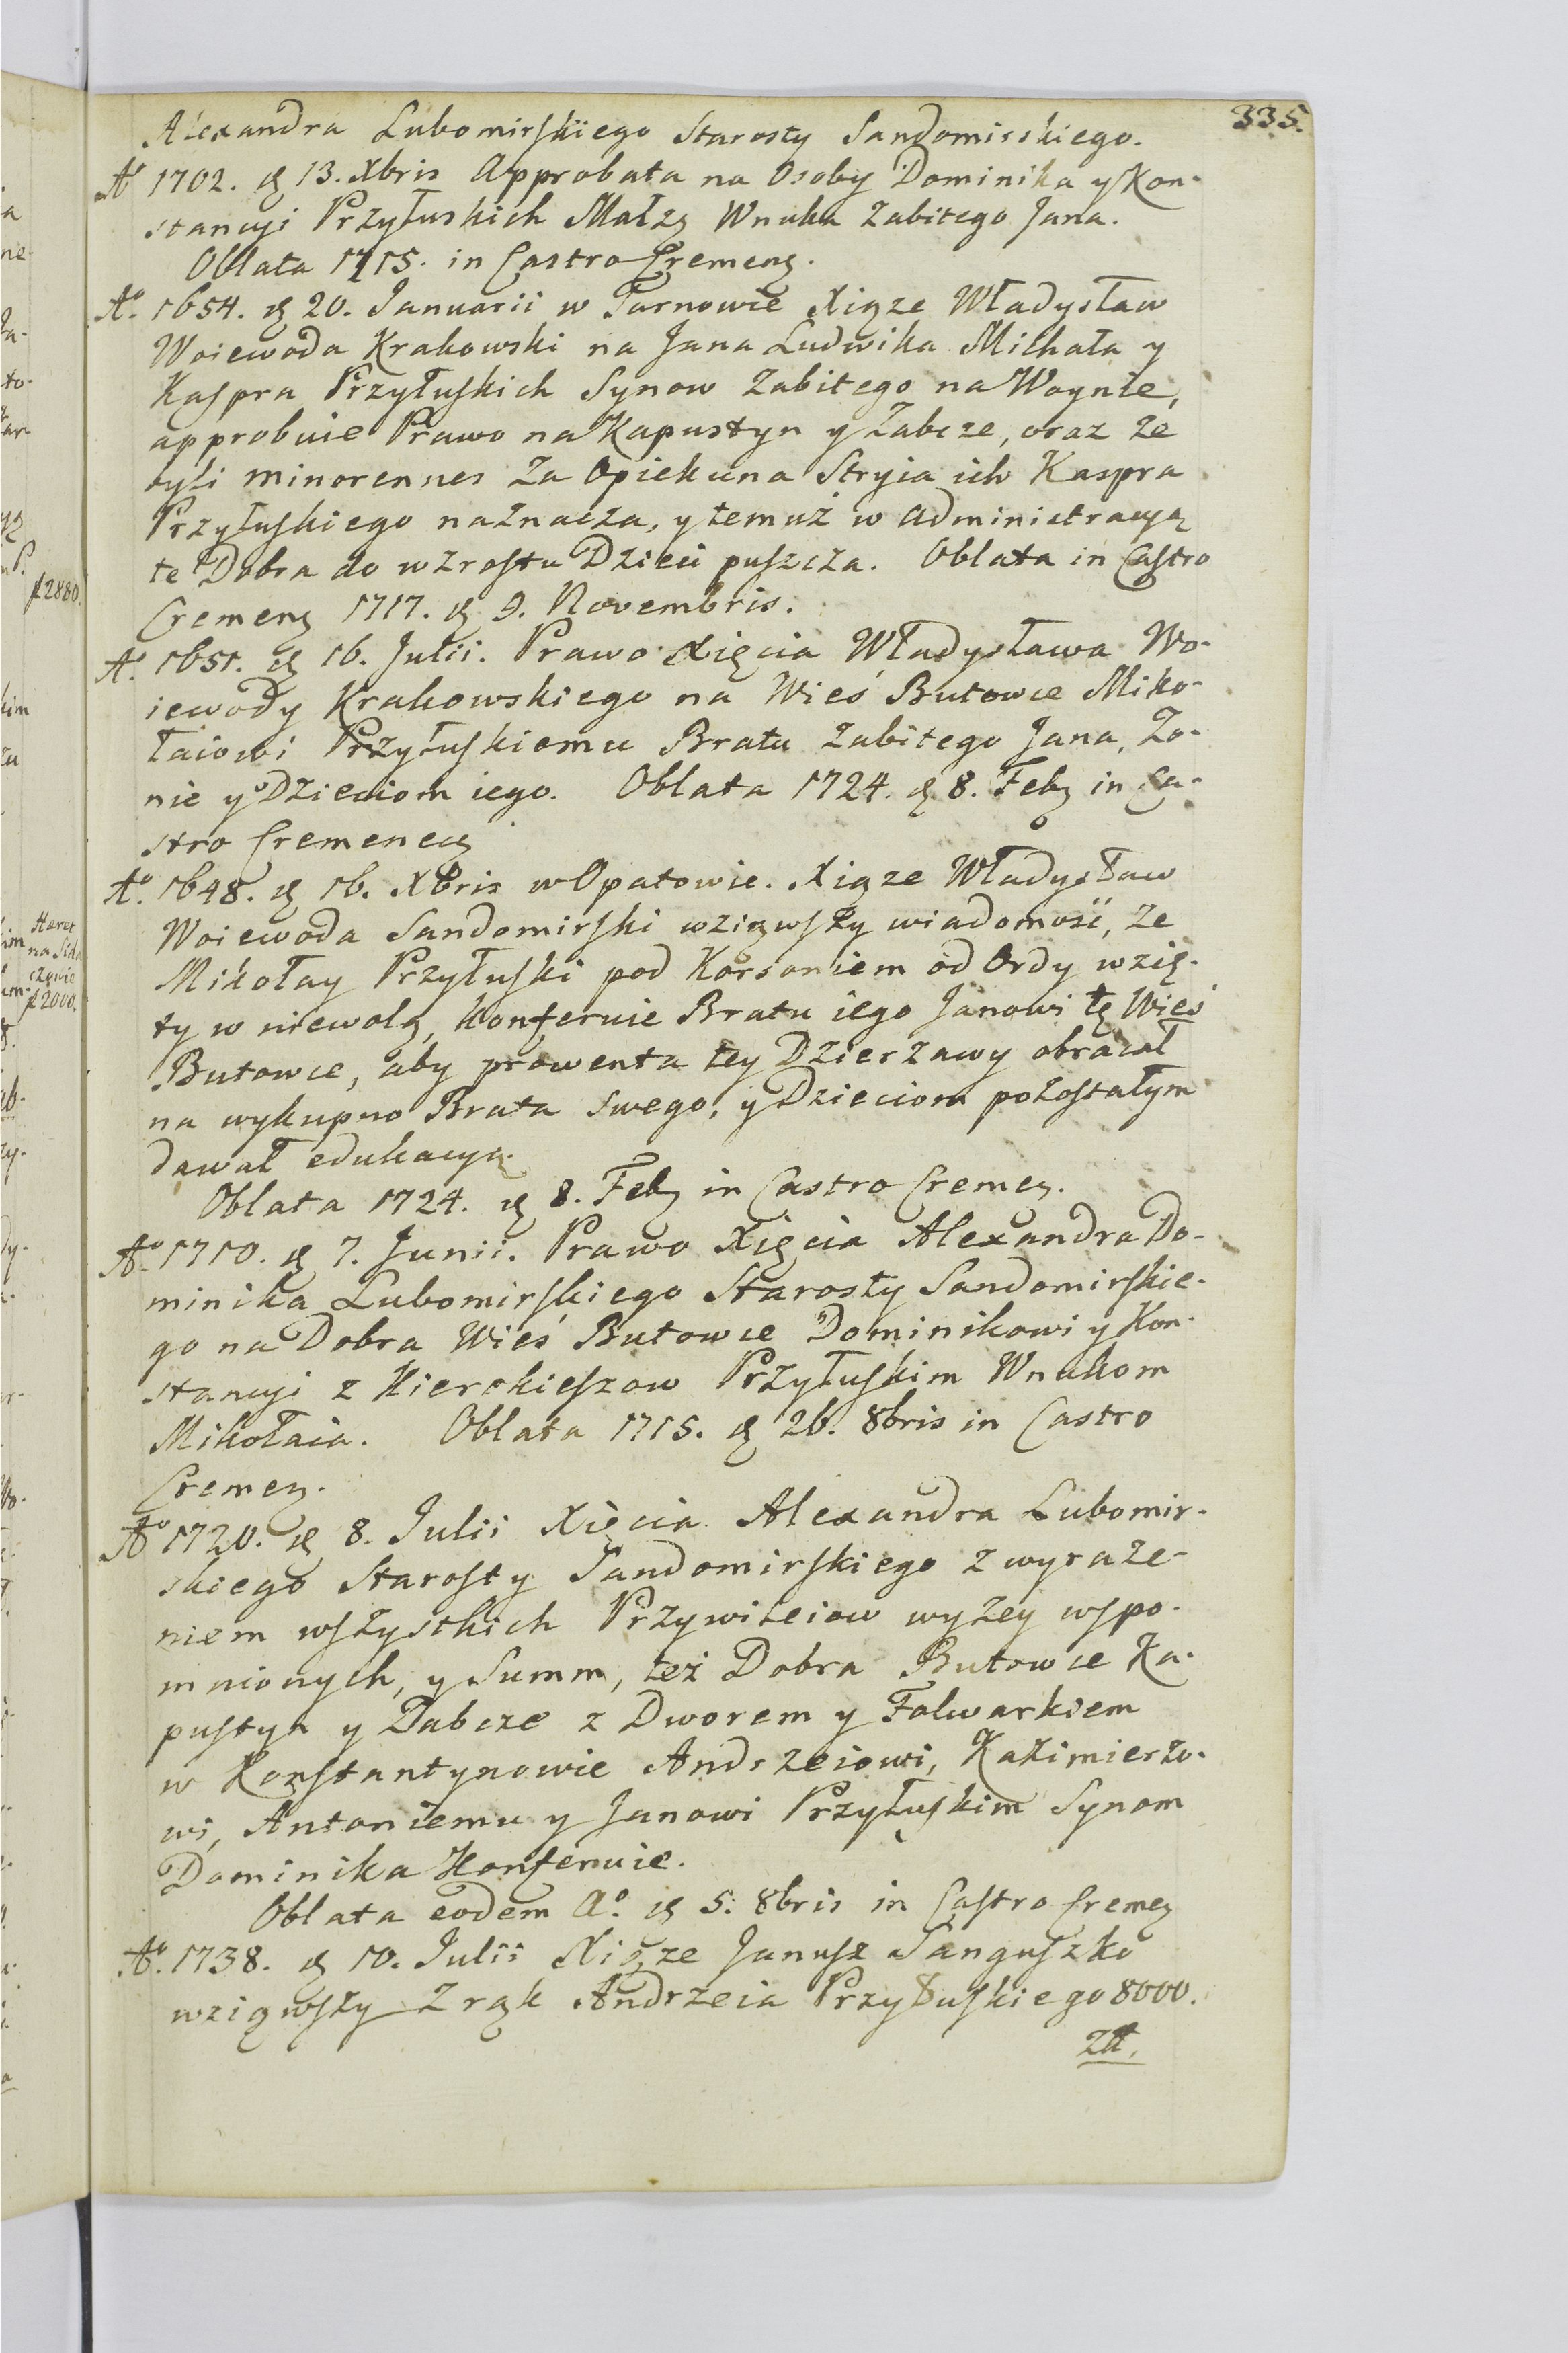 335.
Alexandra Lubomirskiego Starosty Sandomirskiego.
Aº 1702. d 13. Xbris Approbata na Osoby Dominika y Kon-
stancyi Przyłuskich Małżą Wnuka zabitego Jana.
Oblata 1715. in Castro Cremenz.
Aº. 1654. d 20. Januarii w Tarnowie Xiąze Władysław
Woiewoda Krakowski na Jana Ludwika Michała y
Kaspra Przyłuskich Synow zabitego na Woynie,
approbuie Prawo na Kapustyn y Zabcze, oraz ze
byli minorennes za Opiekuna Stryia ich Kaspra
Przyłuskiego naznacza, y temuż w Administracyą
te Dobra do wzrostu Dzieci puszcza. Oblata in Castro
Cremenz 1717. d 9. Novembris.
Aº. 1651. d 16. Julii. Prawo Xięcia Władysława Wo-
iewody Krakowskiego na Wieś Butowce Miko-
łaiowi Przyłuskiemu Bratu zabitego Jana, Zo-
nie y Dzieciom iego. Oblata 1724. d 8. Febz in Ca-
stro Cremenecz
Aº. 1648. d 16. Xbris w Opatowie. Xiąze Władysław
Woiewoda Sandomirski wziąwszy wiadomość, ze
Mikołay Przyłuski pod Korsoniem od Ordy wzię-
ty w niewolą, konferuie Bratu iego Janowi tę Wieś
Butowce, aby prowenta tey Dzierzawy obracał
na wykupno Brata swego, y Dzieciom pozostałym
dawał edukacyą.
Oblata 1724. d 8. Febz in Castro Cremez.
Aº. 1710. d 7. Junii. Prawo Xięcia Alexandra Do-
minika Lubomirskiego Starosty Sandomirskie-
go na Dobra Wieś Butowce Dominikowi y Kon-
stancyi z Kierekieszow Przyłuskim Wnukom
Mikołaia. Oblata 1715. d 26. 8bris in Castro
Cremez.
Aº 1720. d 8. Julii Xięcia Alexandra Lubomir-
skiego Starosty Sandomirskiego z wyraze-
niem wszystkich Przywileiow wyzey wspo-
mnionych, y Summ, też Dobra Butowce Ka-
pustyn y Dabcze z Dworem y Folwarkiem
w Konstantynowie Andrzeiowi, Kazimierzo-
wi, Antoniemu y Janowi Przyłuskim Synom
Dominika Konferuie.
Oblata eodem Aº. d 5. 8bris in Castro Cremez
Aº. 1738. d 10. Julii Xiąze Janusz Sanguszko
wziąwszy z rąk Andrzeia Przyłuskiego 8000.
Zł.
#2880.
na
#2000.